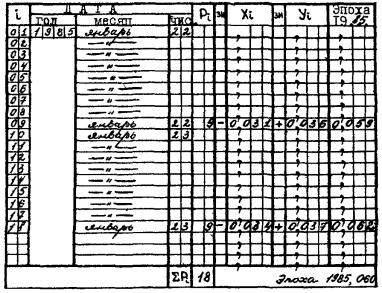 i ДАТА Pi зн Xi зн Yi Эпоха
год месяц чис. 19 85
01 1985 январь 22
02 —"—
03 —"—
04 —"—
05 —"—
06 —"—
07 —"—
08 —"—
09 январь 22 9 - 0,031 + 0,036 0,059
10 январь 23
11 —"—
12 —"—
13 —"—
14 —"—
15 —"—
16 —"—
17 —"—
18 январь 23 9 - 0,034 + 0,037 0,062
ΣP 18 Эпоха 1985,060